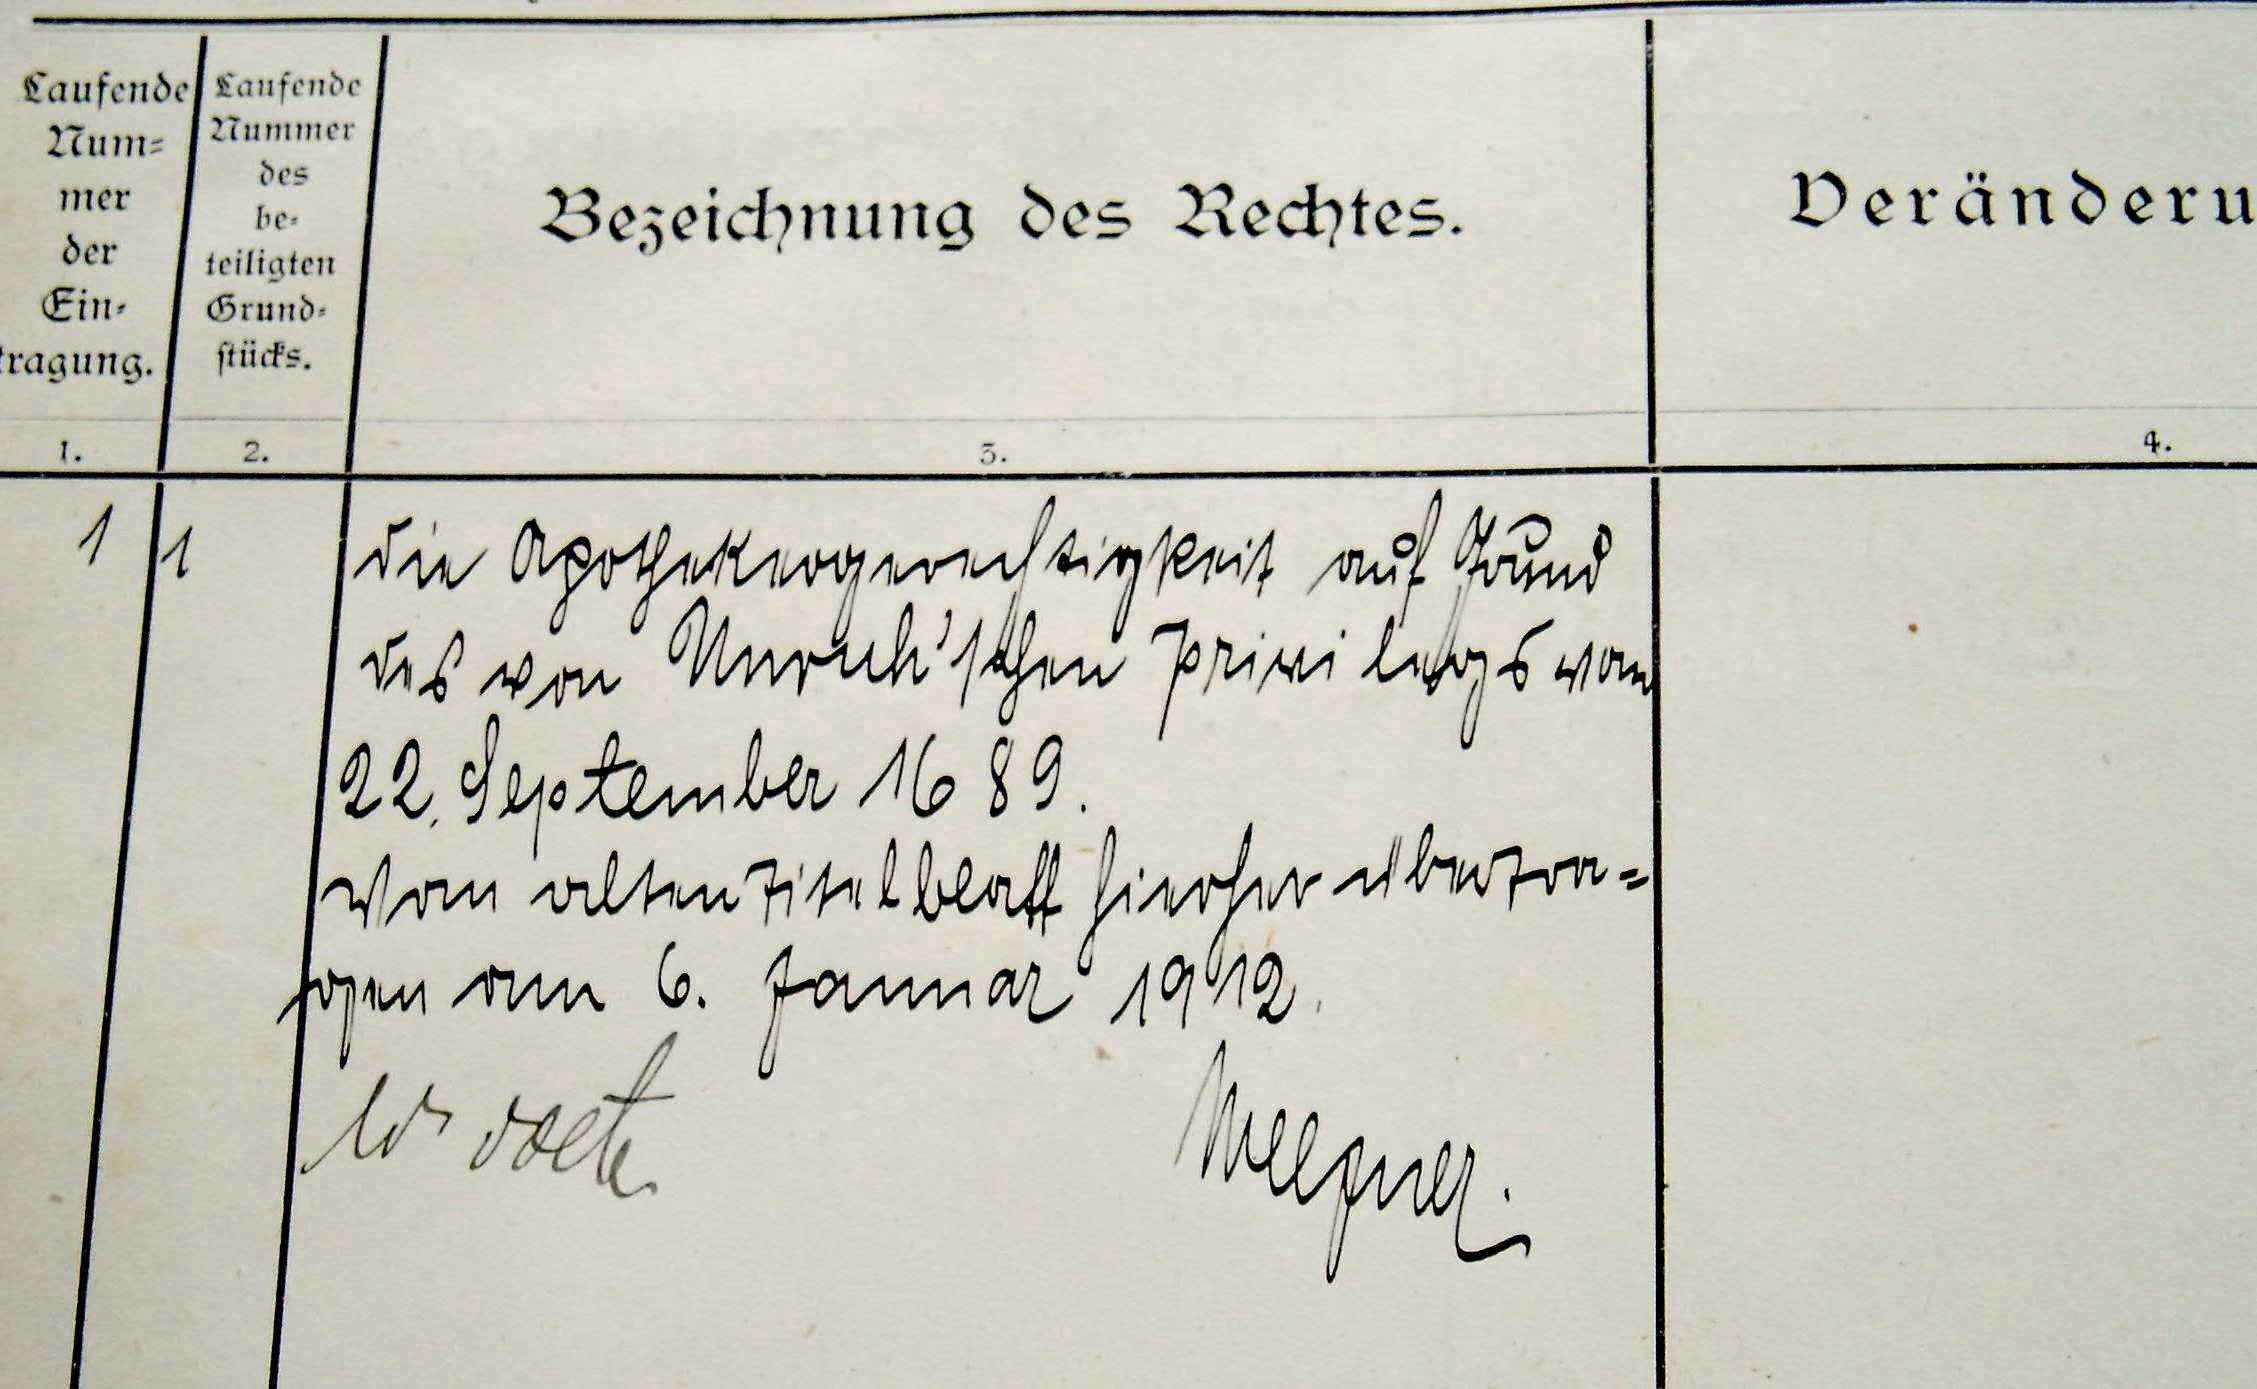 Laufende
Num-
mer
der
Ein-
tragung.
Laufende
Nummer
des
be-
teiligten
Grund-
stücks.
Bezeichnung des Rechtes.
Veränderu
1.
2.
3.
4.
1
1
die Apothekergerechtigkeit auf Grund
des von Unruh'schen Privilegs vom
22. September 1689.
Vom alten Titelblatt hierher übertra=
gen am 6. Januar 1912.